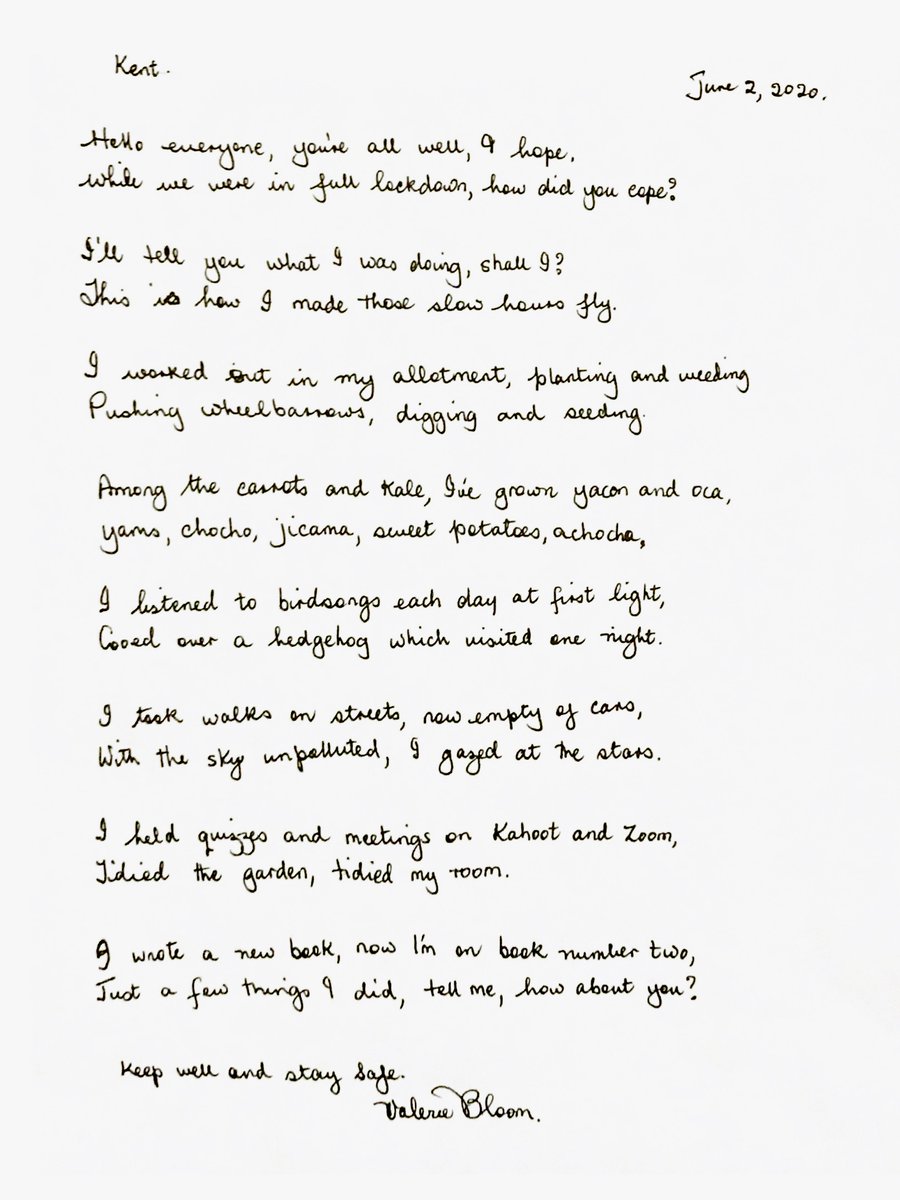 Kent.
June 2, 2020.
Hello everyone, you're all well, I hope.
While we were in full lockdown, how did you cope?
I'll tell you what I was doing, shall I?
This is how I made those slow hours fly.
I worked out in my allotment, planting and weeding
Pushing wheelbarrows, digging and seeding.
Among the carrots and kale, I've grown yacon and oca,
yams, chocho, jicama, sweet potatoes, achocha,
I listened to birdsongs each day at first light,
Cooed over a hedgehog which visited one night.
I took walks on streets, now empty of cars,
With the sky unpolluted, I gazed at the stars.
I held quizzes and meetings on Kahoot and Zoom,
Tidied the garden, tidied my room.
I wrote a new book, now I'm on book number two,
Just a few things I did, tell me, how about you?
Keep well and stay safe.
Valerie Bloom.